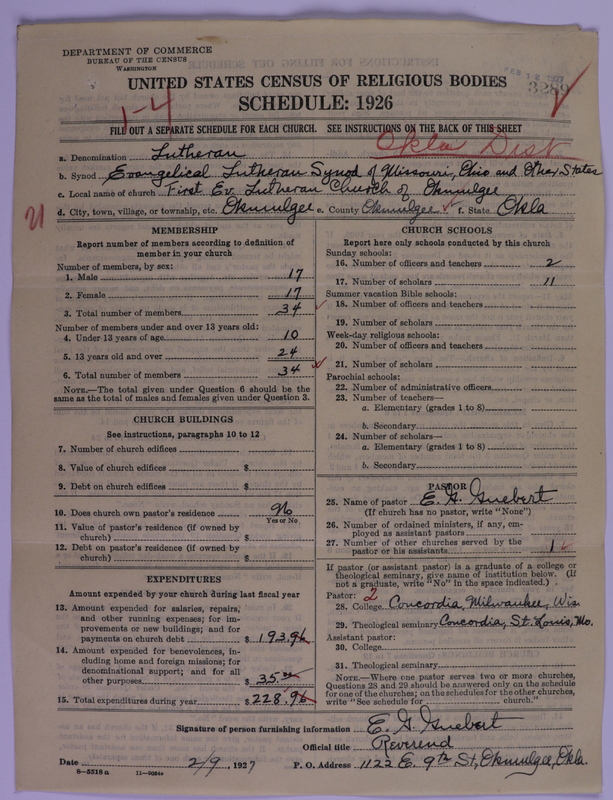 DEPARTMENT OF COMMERCE
BUREAU OF THE CENSUS
WASHINGTON
UNITED STATES CENSUS OF RELIGIOUS BODIES
SCHEDULE: 1926
3289
1-4
FILL OUT A SEPARATE SCHEDULE FOR EACH CHURCH. SEE INSTRUCTIONS ON THE BACK OF THIS SHEET
Okla Dist
a. Denomination Lutheran
b. Synod Evangelical Lutheran Synod of Missouri, Ohio and Other States
c. Local name of church First Ev. Lutheran Church of Okmulgee
d. City, town, village, or township, etc. Okmulgee e. County Okmulgee f. State Okla
MEMBERSHIP
Report number of members according to definition of
member in your church
Number of members, by sex:
1. Male 17
2. Female 17
3. Total number of members 34
Number of members under and over 13 years old:
4. Under 13 years of age 10
5. 13 years old and over 24
6. Total number of members 34
NOTE.—The total given under Question 6 should be
same as the total of males and females given under Question 3.
CHURCH BUILDINGS
See instructions, paragraphs 10 to 12
7. Number of church edifices
8. Value of church edifices $
9. Debt on church edifices $
10. Does church own pastor's residence No
Yes or No
11. Value of pastor's residence (if owned by
church) $
12. Debt on pastor's residence (if owned by
church) $
EXPENDITURES
Amount expended by your church during last fiscal year
13. Amount expended for salaries, repairs,
and other running expenses; for im-
provements or new buildings; and for
payments on church debt $ 193.96
14. Amount expended for benevolences, in-
cluding home and foreign missions; for
denominational support; and for all
other purposes $ 35.00
15. Total expenditures during year $ 228.96
CHURCH SCHOOLS
Report here only schools conducted by this church
Sunday schools:
16. Number of officers and teachers 2
17. Number of scholars 11
Summer vacation Bible schools:
18. Number of officers and teachers
19. Number of scholars
Week-day religious schools:
20. Number of officers and teachers
21. Number of scholars
Parochial schools:
22. Number of administrative officers
23. Number of teachers—
a. Elementary (grades 1 to 8)
b. Secondary
24. Number of scholars—
a. Elementary (grades 1 to 8)
b. Secondary
PASTOR
25. Name of pastor E. G. Guebert
(If church has no pastor, write "None")
26. Number of ordained ministers, if any, em-
ployed as assistant pastors
27. Number of other churches served by the
pastor or his assistants 1
If pastor (or assistant pastor) is a graduate of a college or
theological seminary, give name of institution below. (If
not a graduate, write "No" in the space indicated.)
Pastor: 2
28. College Concordia, Milwaukee, Wis.
29. Theological seminary Concordia, St. Louis, Mo.
Assistant pastor:
30. College
31. Theological seminary
NOTE.—Where one pastor serves two or more churches,
Questions 28 and 29 should be answered only on the schedule
for one of the churches; on the schedules for the other churches,
write "See schedule for church."
Signature of person furnishing information E. G. Guebert
Official title Reverend
Date 2/9, 1927 P. O. Address 1122 E. 9th St, Okmulgee, Okla.
8-5518a 11-9084